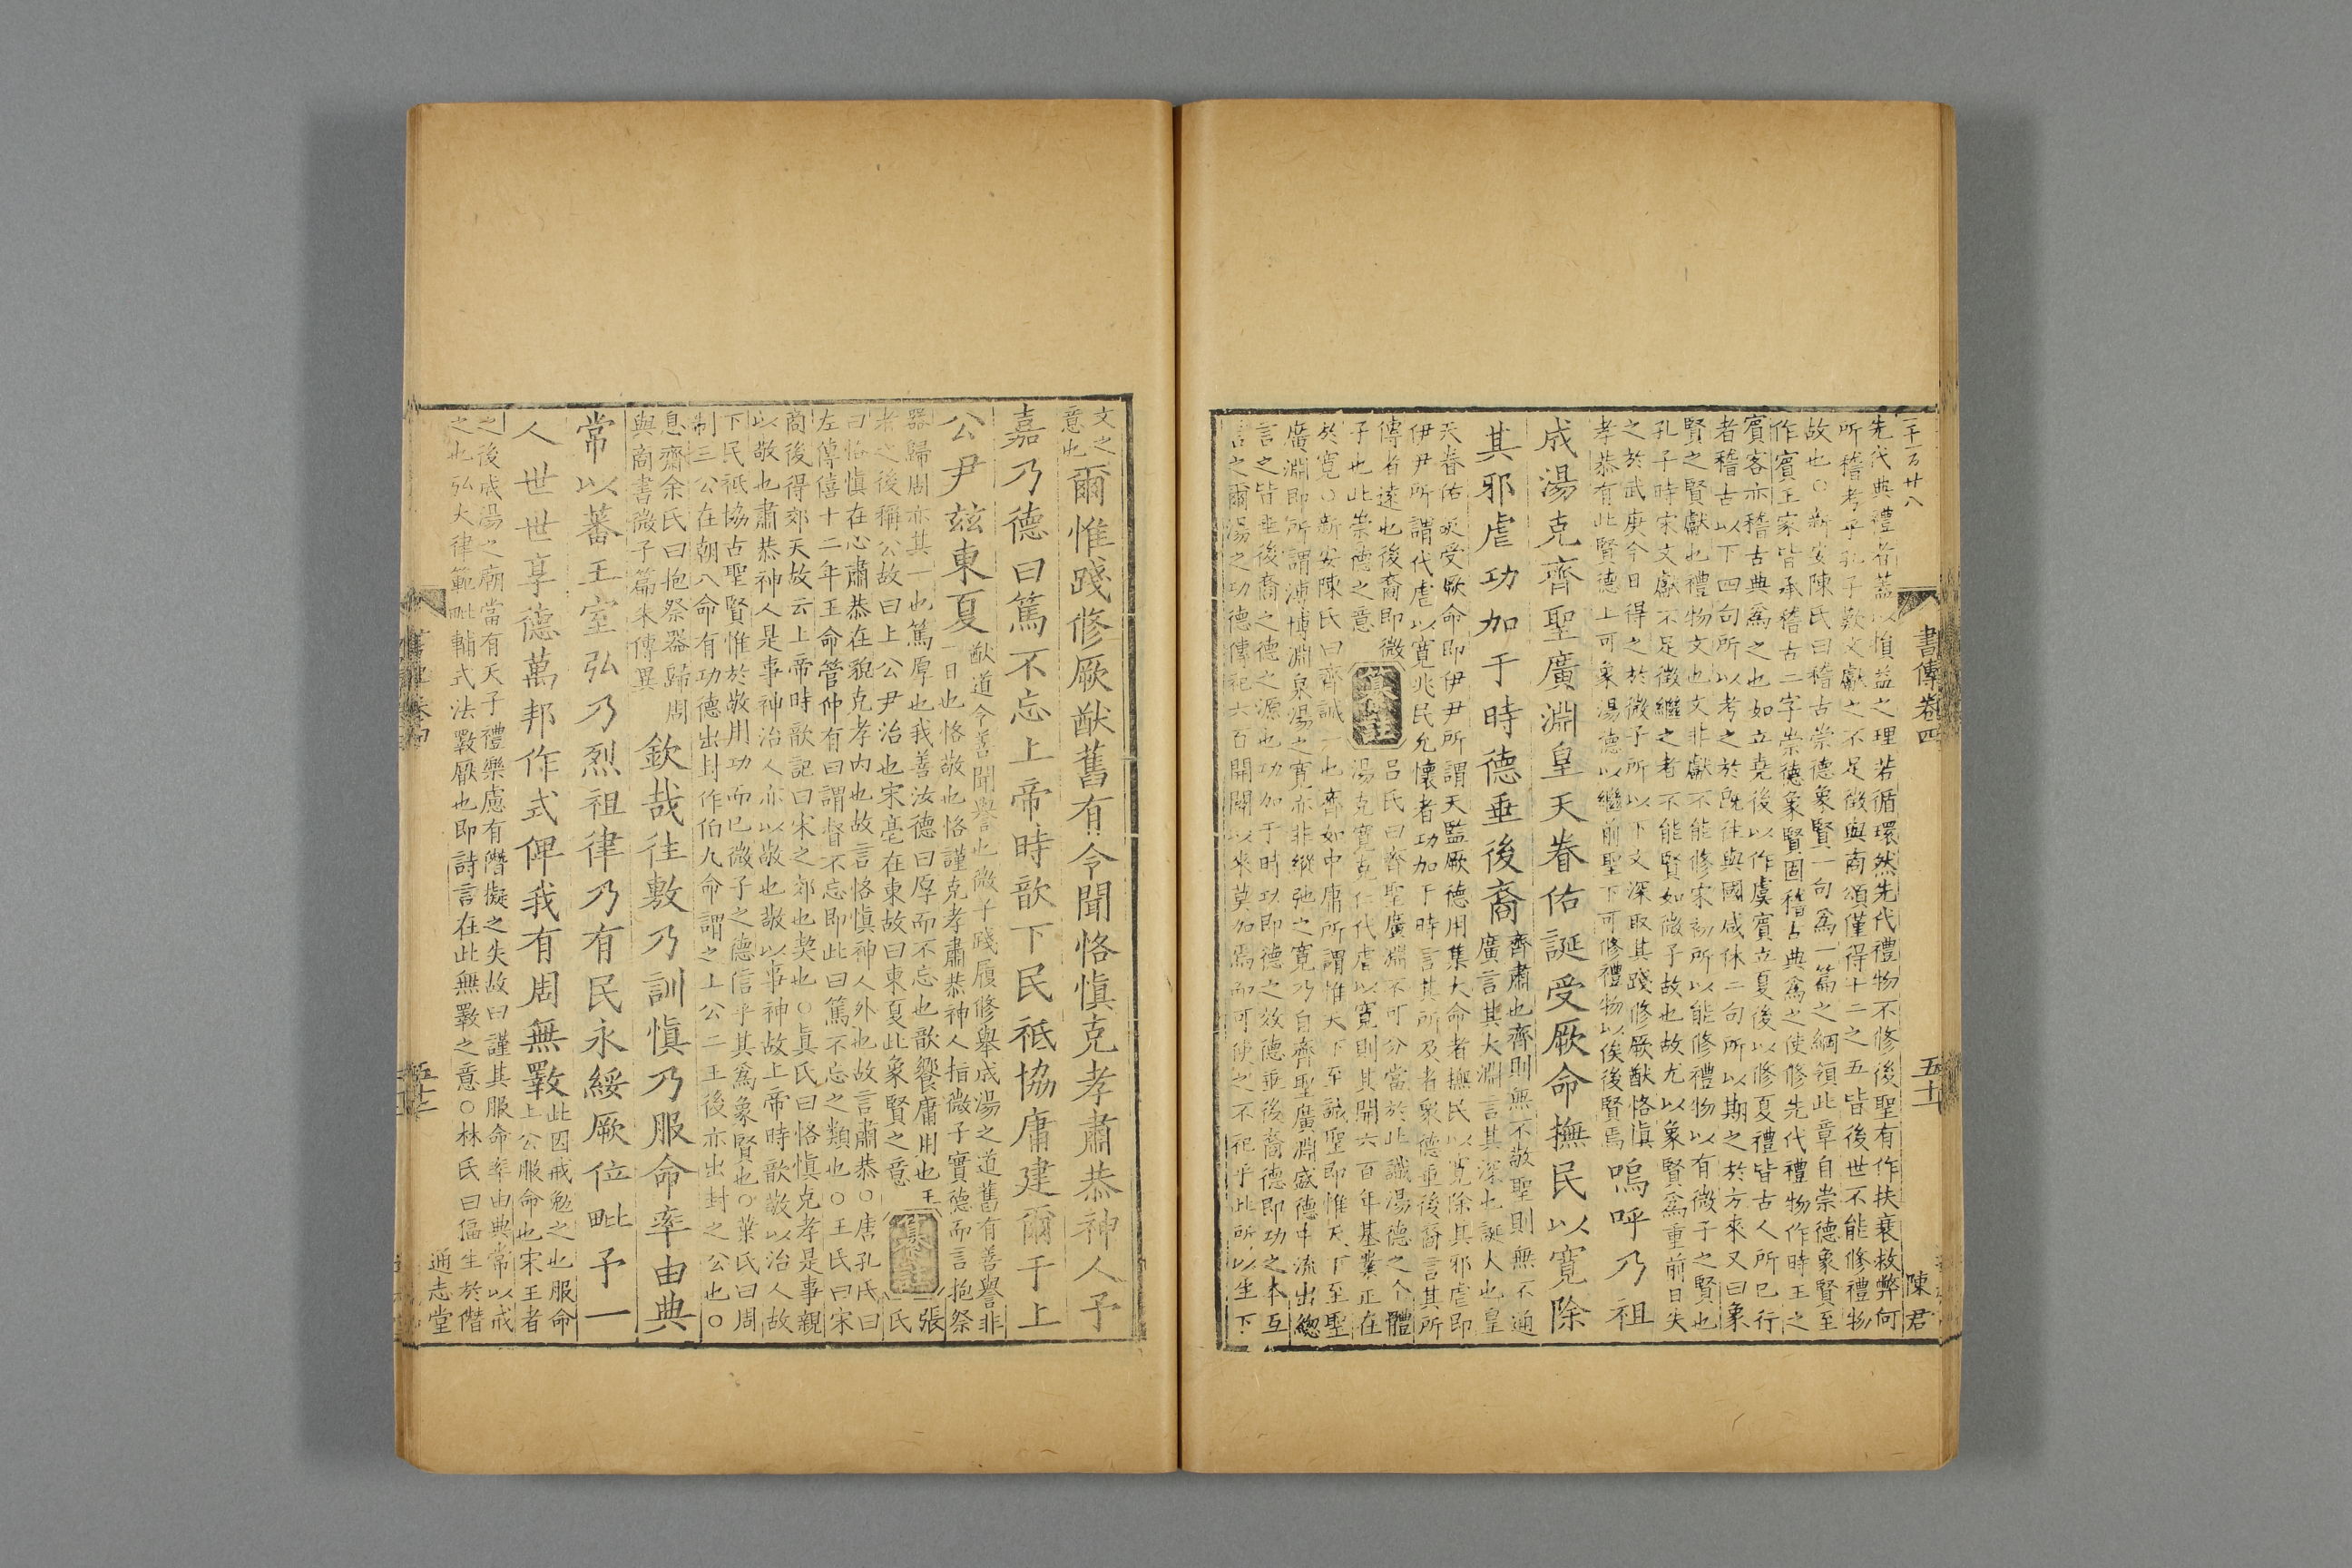 二千一百廿八
書傳卷四
五十一
陳君
先代典禮者蓋以損益之理若循環然先代禮物不修後聖有作扶衰救弊何
所稽考乎孔子歎文獻之不足徵與商頌僅得十二之五皆後世不能修禮物
故也○新安陳氏曰稽古崇德象賢一句為一篇之綱領此章自崇德象賢至
作賓王家皆承稽古二字崇德象賢固稽古典為之使修先代禮物作時王之
賓客亦稽古典為之也如立堯後以作虞賓立夏後以修夏禮皆古人所已行
者稽古以下四句所以考之於既往與國咸休二句所以期之於方來又曰象
賢之賢獻也禮物文也文非獻不能修宋初所以能修禮物以有微子之賢也
孔子時宋文獻不足徵繼之者不能賢如微子故也故尤以象賢為重前日失
之於武庚今日得之於微子所以下文深取其踐修厥猷恪慎
孝恭有此賢德上可象湯德以繼前聖下可修禮物以俟後賢焉
嗚呼乃祖
成湯克齊聖廣淵皇天眷佑誕受厥命撫民以寬除
其邪虐功加于時德垂後裔
齊肅也齊則無不敬聖則無不通
廣言其大淵言其深也誕大也皇
天眷佑誕受厥命即伊尹所謂天監厥德用集大命者撫民以寬除其邪虐即
伊尹所謂代虐以寬兆民允懷者功加于時言其所及者衆德垂後裔言其所
傳者遠也後裔即微
子也此崇德之意
集註
呂氏曰齊聖廣淵不可分當於此識湯德之全體
湯克寬克仁代虐以寬則其開六百年基業正在
於寬○新安陳氏曰齊誠一也齊如中庸所謂惟天下至誠聖即惟天下至聖
廣淵即所謂溥博淵泉湯之寬亦非縱弛之寬乃自齊聖廣淵盛德中流出總
言之皆垂後裔之德之源也功加于時功即德之效德垂後裔德即功之本互
言之爾湯之功德傳祀六百開闢以來莫加焉而可使之不祀乎此所以生下
文之
意也
爾惟踐修厥猷舊有令聞恪慎克孝肅恭神人予
嘉乃德曰篤不忘上帝時歆下民祗協庸建爾于上
公尹茲東夏
猷道令善聞譽也微子踐履修舉成湯之道舊有善譽非
一日也恪敬也恪謹克孝肅恭神人指微子實德而言抱祭
器歸周亦其一也篤厚也我善汝德曰厚而不忘也歆饗庸用也王
者之後稱公故曰上公尹治也宋亳在東故曰東夏此象賢之意
集註
張
氏
曰恪慎在心肅恭在貌克孝內也故言恪慎神人外也故言肅恭○唐孔氏曰
左傳僖十二年王命管仲有曰謂督不忘即此曰篤不忘之類也○王氏曰宋
商後得郊天故云上帝時歆記曰宋之郊也契也○真氏曰恪慎克孝是事親
以敬也肅恭神人是事神治人亦以敬也敬以事神故上帝時歆敬以治人故
下民祗協古聖賢惟於敬用功而已微子之德信乎其為象賢也○葉氏曰周
制三公在朝八命有功德出封作伯九命謂之上公二王後亦出封之公也○
息齋余氏曰抱祭器歸周
與商書微子篇朱傳異
欽哉往敷乃訓慎乃服命率由典
常以蕃王室弘乃烈祖律乃有民永綏厥位毗予一
人世世享德萬邦作式俾我有周無斁
此因戒勉之也服命
上公服命也宋王者
之後成湯之廟當有天子禮樂慮有僭擬之失故曰謹其服命率由典常以戒
之也弘大律範毗輔式法斁厭也即詩言在此無斁之意○林氏曰偪生於僭
通志堂